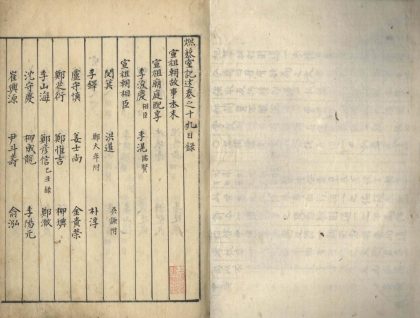 燃藜室記述卷之十九目錄
宣祖朝故事本末
宣祖廟庭配享
李浚慶 相臣 李滉 儒賢
宣祖朝相臣
閔箕 洪暹 吳謙附
李鐸 鄭大年附 朴淳
盧守愼 姜士尚 金貴榮
鄭芝衍 鄭惟吉 柳㙉
李山海 鄭彦信 己丑錄 鄭澈
沈守慶 柳成龍 李陽元
崔興源 尹斗壽 兪泓